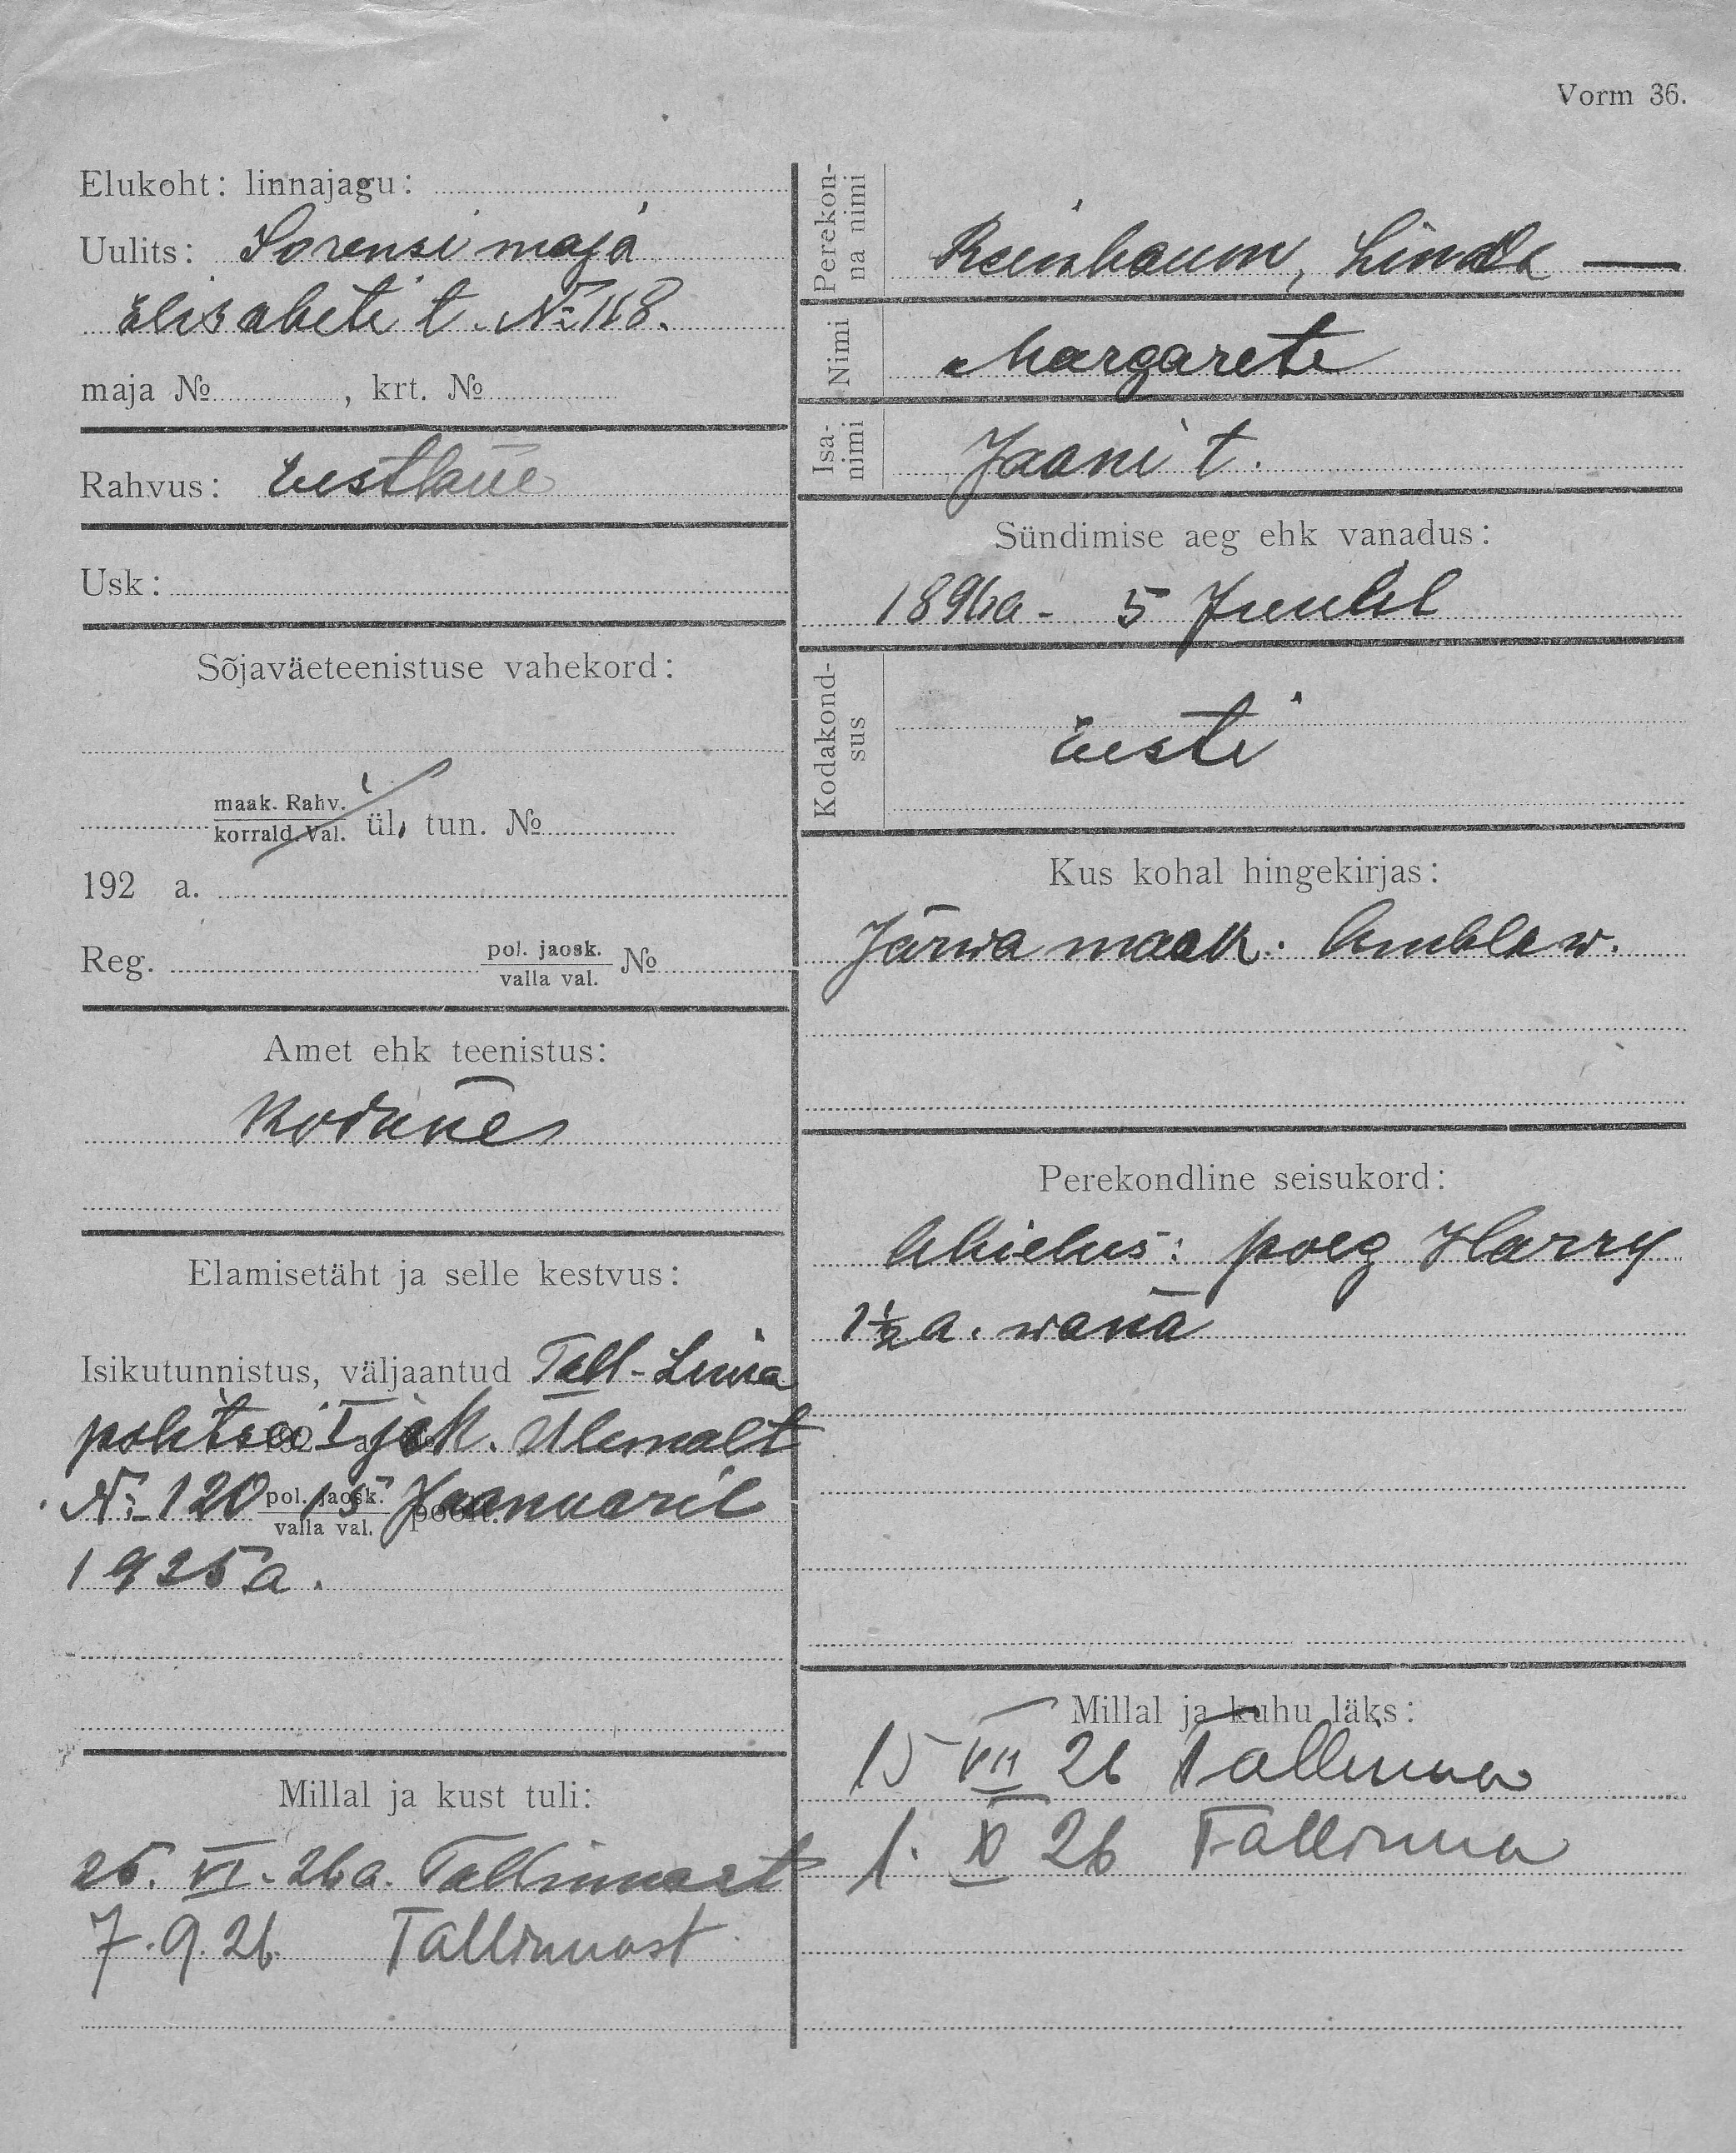 Vorm 36.
Elukoht: linnajagu:
Uulits: Sorensi maja
Elisabeti t. № 118.
maja № , krt. №
Rahvus: Eestlane
Usk:
Sõjaväeteenistuse vahekord:
maak. Rahv.
korrald. Val. ül. tun. №
192 a.
Reg. pol. jaosk. №
valla val.
Amet ehk teenistus:
Kodune
Elamisetäht ja selle kestvus:
Isikutunnistus, väljaantud Tall-Linna
politsei I jsk. Ülemalt
№ 120 15 Jaanuaril
pol. jaosk. poolt.
valla val.
1925 a.
Millal ja kust tuli:
25. VI. 26 a. Tallinnast
7. 9. 26. Tallinnast
Perekonna nimi
Reinbaum, Linda —
Nimi
Margarete
Isanimi
Jaani t.
Sündimise aeg ehk vanadus:
1896 a - 5 Juulil
Kodakondsus
Eesti
Kus kohal hingekirjas:
Järwa maak. Ambla w.
Perekondline seisukord:
Abielus: poeg Harry
1½ a. wana
Millal ja kuhu läks:
15 VII 26 Tallinna
1. X 26 Tallinna